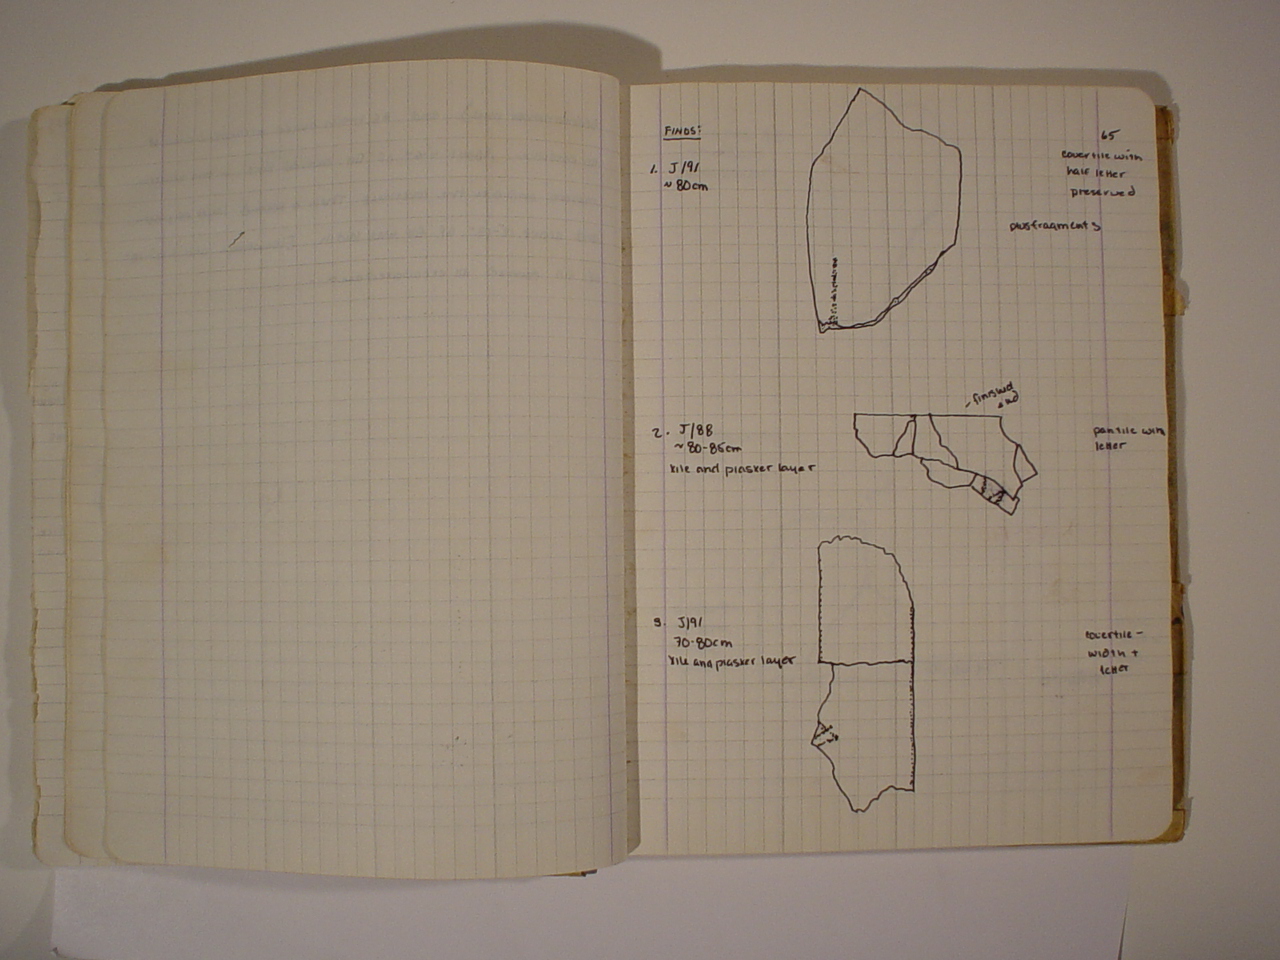 65
FINDS:
1. J/91
~80cm
covertile with
half letter
preserved
plus fragments
- finished
end
2. J/88
~80-85cm
tile and plaster layer
pantile with
letter
3. J/91
70-80cm
tile and plaster layer
covertile -
width +
letter